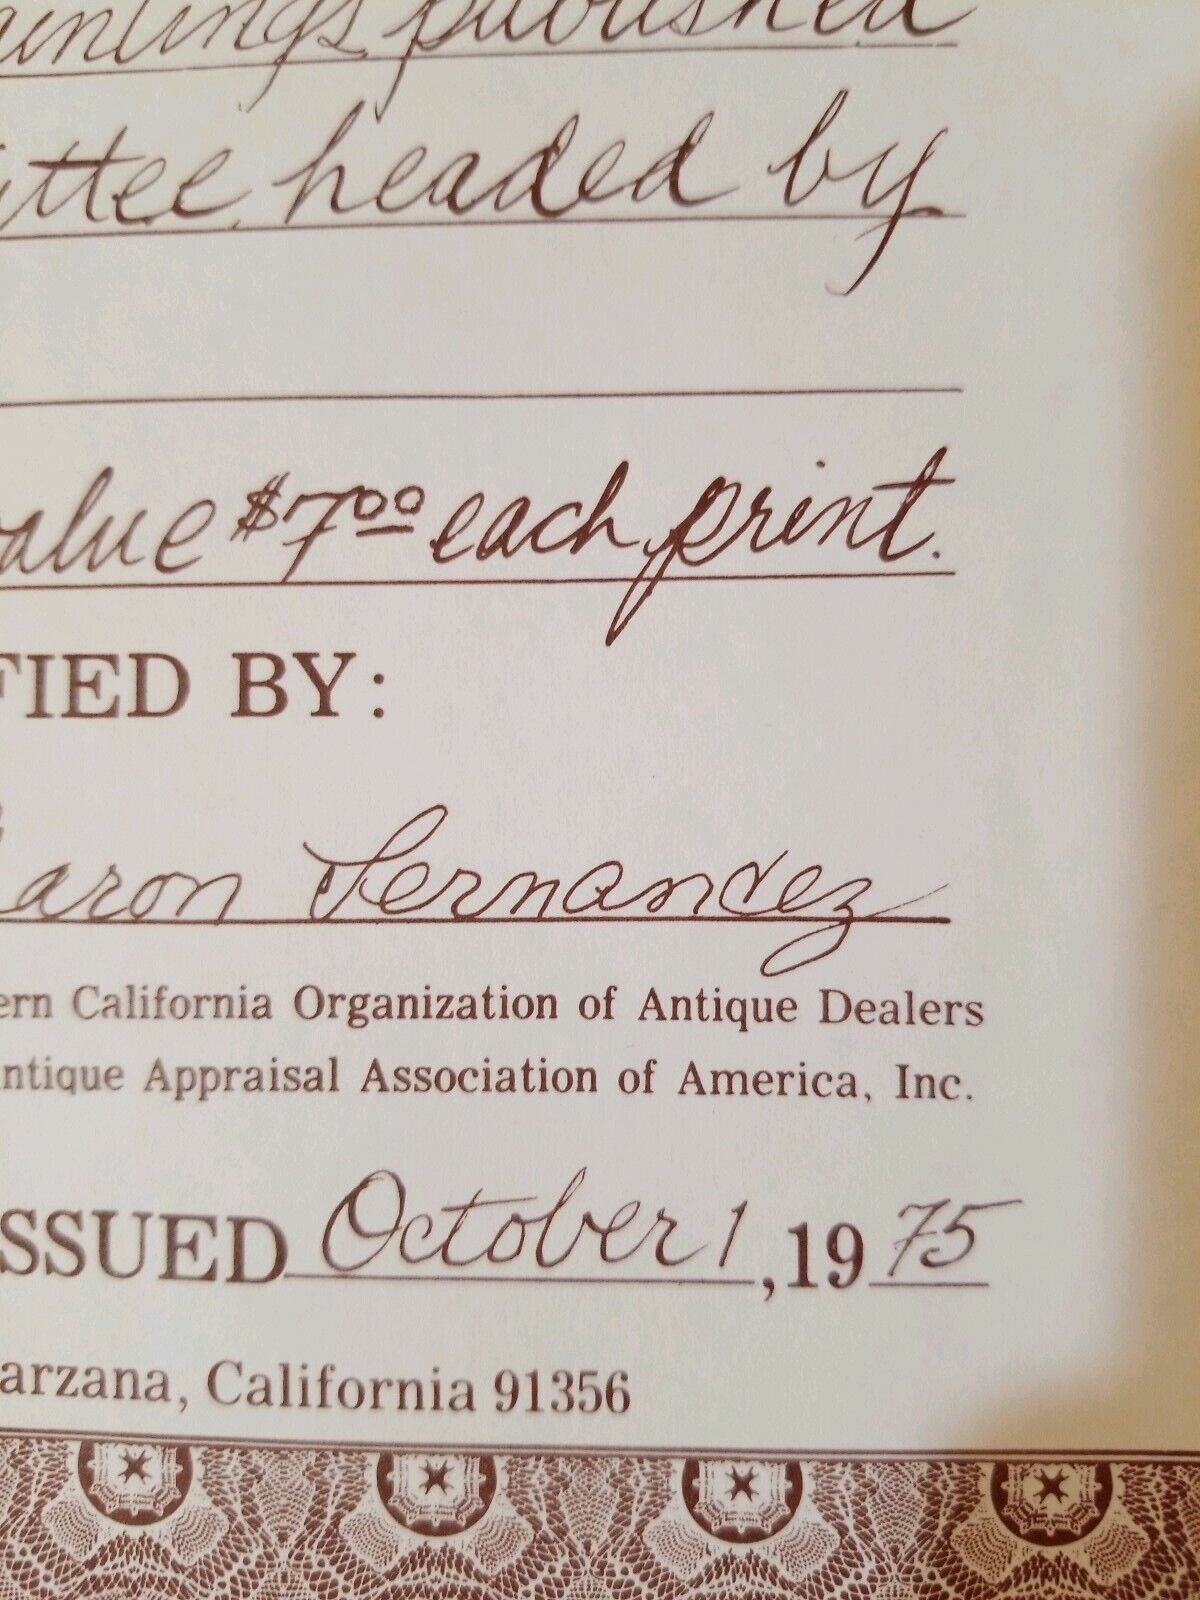 untings published
ittee headed by
value $7.00 each print.
FIED BY:
aron Fernandez
ern California Organization of Antique Dealers
ntique Appraisal Association of America, Inc.
SSUED October 1, 1975
arzana, California 91356